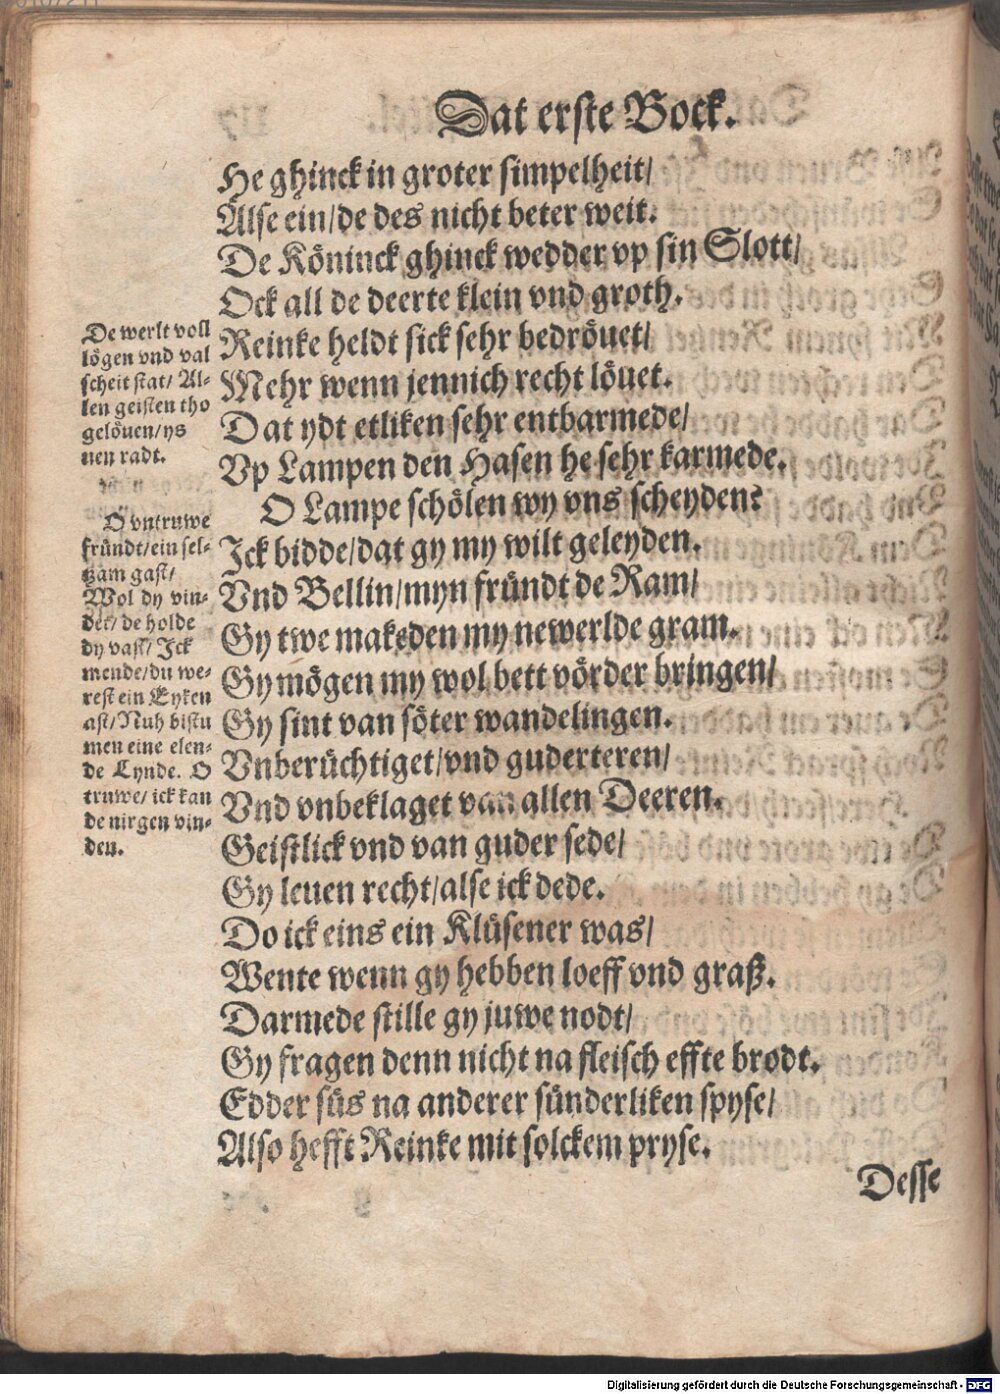 Dat erste Bock.
He ghinck in groter simpelheit/
Alse ein/de des nicht beter weit.
De Köninck ghinck wedder vp sin Slott/
Ock all de deerte klein vnd groth.
Reinke heldt sick sehr bedröuet/
Mehr wenn jennich recht löuet.
Dat ydt etliken sehr entbarmede/
Vp Lampen den Hasen he sehr karmede.
O Lampe schölen wy vns scheyden?
Ick bidde/dat gy my wilt geleyden.
Vnd Bellin/myn fründt de Ram/
Gy twe makeden my newerlde gram.
Gy mögen my wol bett vörder bringen/
Gy sint van söter wandelingen.
Vnberüchtiget/vnd guderteren/
Vnd vnbeklaget van allen Deeren.
Geistlick vnd van guder sede/
Gy leuen recht/alse ick dede.
Do ick eins ein Klüsener was/
Wente wenn gy hebben loeff vnd graß.
Darmede stille gy juwe nodt/
Gy fragen denn nicht na fleisch effte brodt.
Edder süs na anderer sünderliken spyse/
Also hefft Reinke mit solckem pryse.
Desse
De werlt voll
lögen vnd val
scheit stat/ Al-
len geisten tho
gelöuen/ys
nen radt.
O vntruwe
fründt/ein sel-
tzam gast/
Wol dy vin-
det/ de holde
dy vast/ Ick
mende/du we-
rest ein Eyken
ast/Nuh bistu
men eine elen-
de Lynde. O
truwe/ ick kan
de nirgen vin-
den.
Digitalisierung gefördert durch die Deutsche Forschungsgemeinschaft - DFG